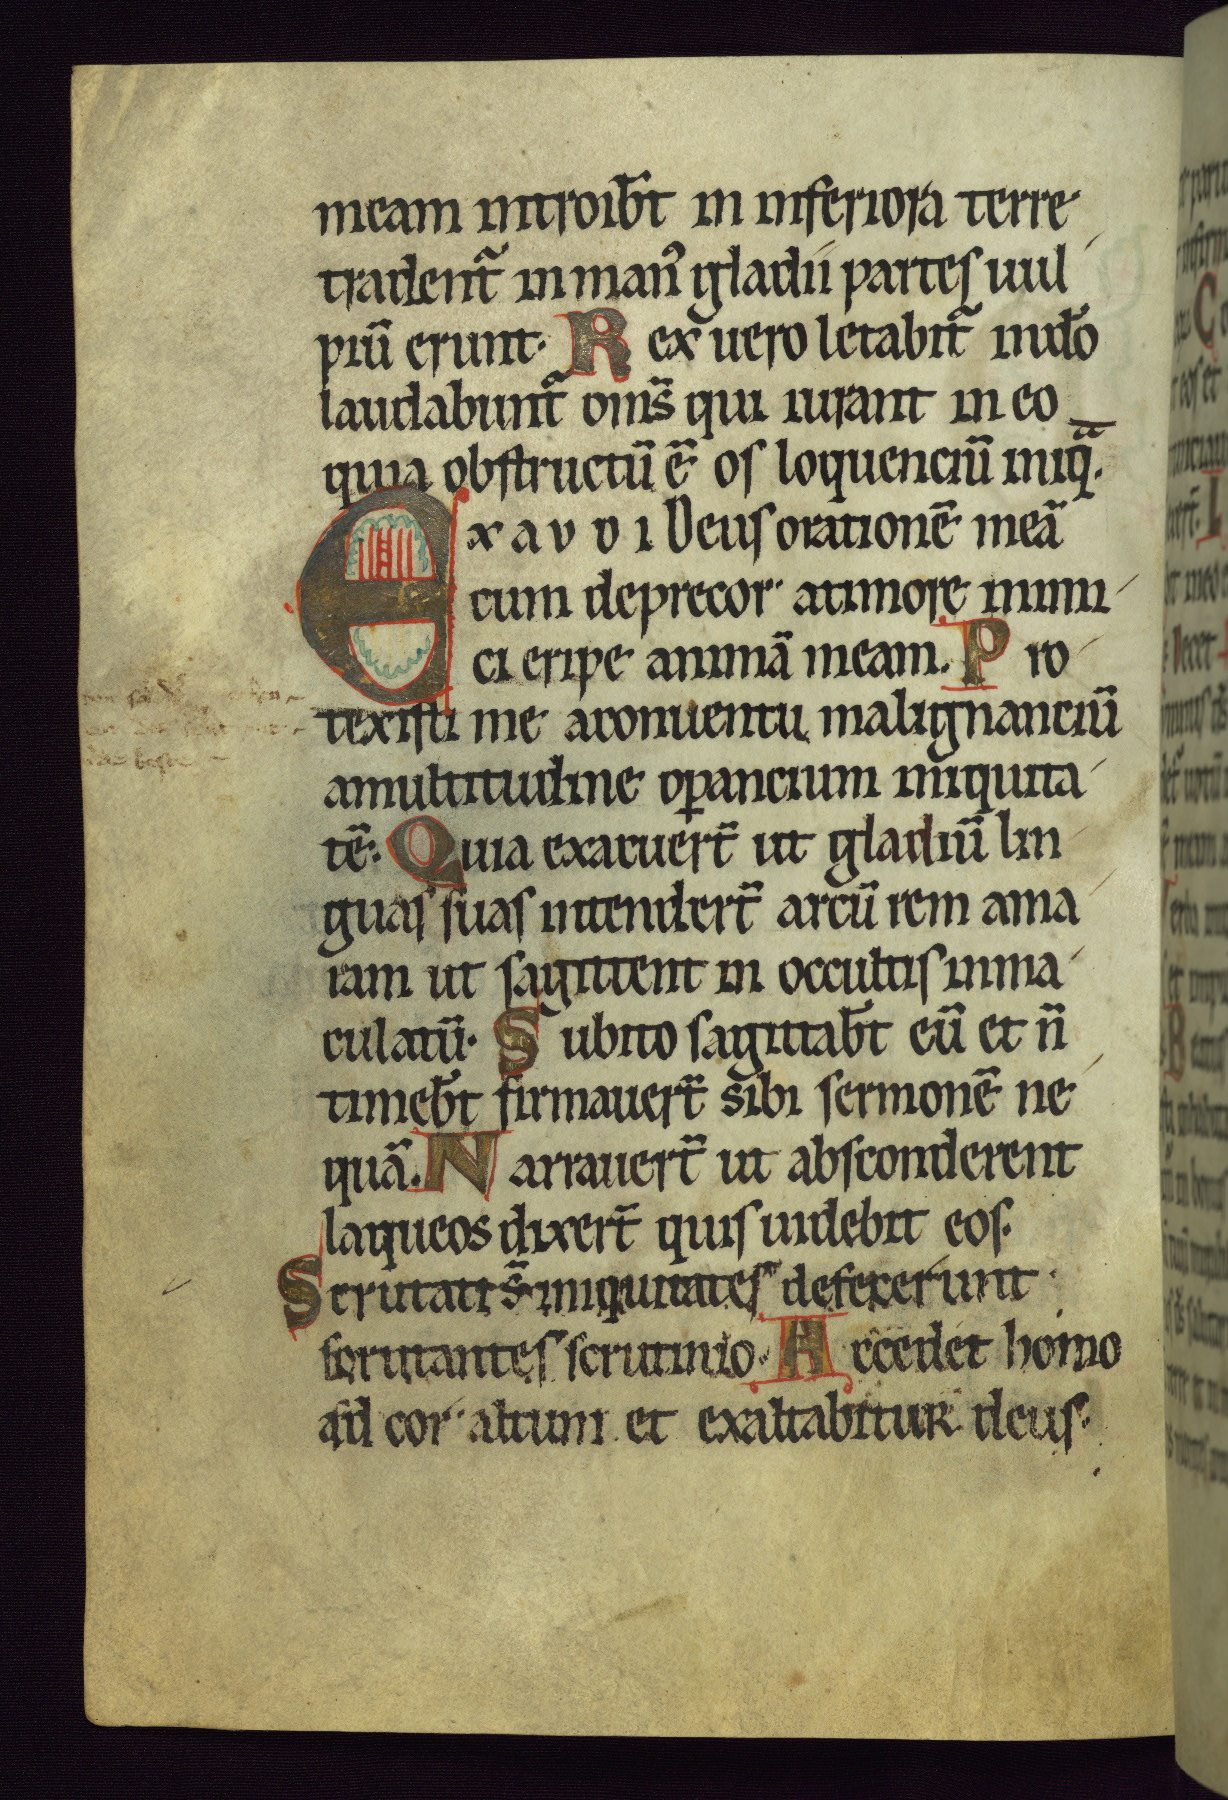 meam introib̄t in inferiora terre·
tradent᷑ in manꝰ gladii partes uul
piū erunt· Rex uero letabit᷑ in dō
laudabunt᷑ om̄s qui iurant in eo
quia obstructū ē os loquenciū iniqͣ.
EXAVDI Deus orationē meā
cum deprecor· a timore inimi
ci eripe animā meam. Pro
texisti me a conuentu malignanciū
a multitudine oꝑancium iniquita
tē· Quia exacuert̄ ut gladiū lin
guas suas intendert̄ arcū rem ama
ram ut sagittent in occultis inma
culatū· Subito sagittab̄t eū et n̄
timeb̄t firmauert̄ sibi sermonē ne
quā. Narrauert̄ ut absconderent
laqueos dixert̄ quis uidebit eos·
Scrutati s̄ iniquitates defecerunt
scrutantes scrutinio· Accedet homo
ad cor altum et exaltabitur deus·